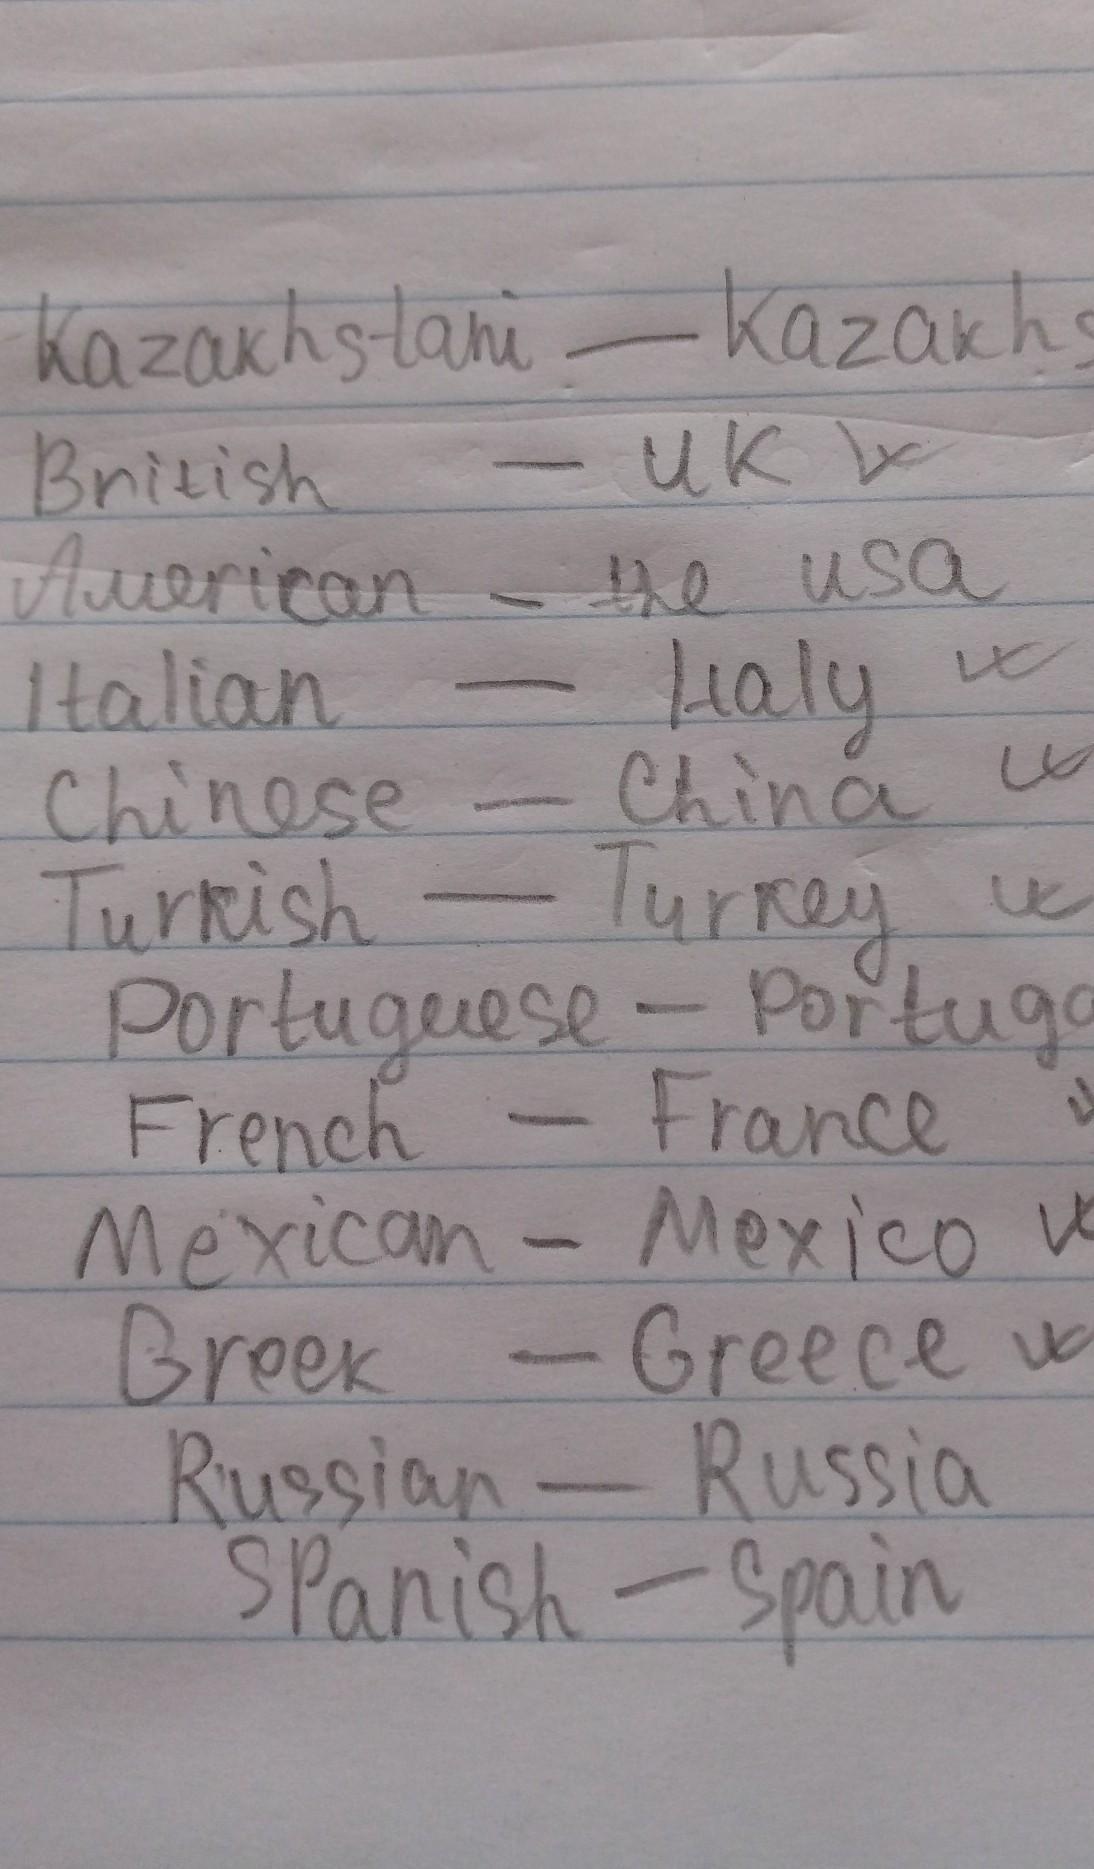 Kazakhstani — Kazakhs
British — UK
American — the USA
Italian — Italy
Chinese — China
Turkish — Turkey
Portuguese — Portuga
French — France
Mexican — Mexico
Greek — Greece
Russian — Russia
Spanish — Spain